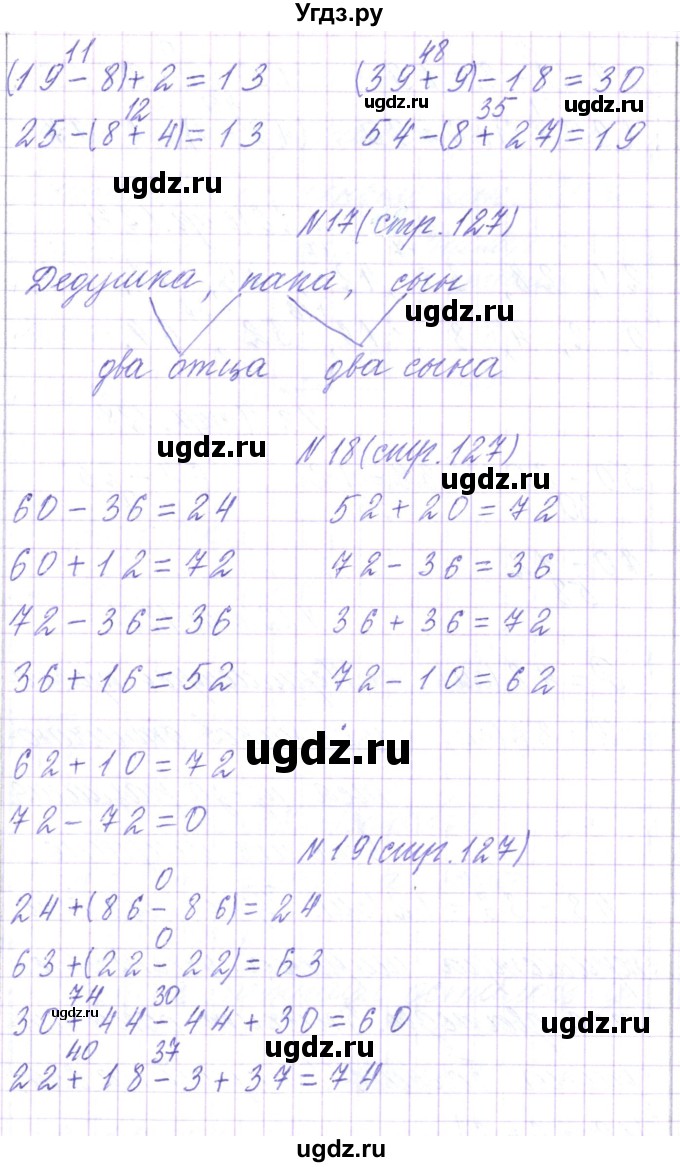 Угдз.ру
11 48
(19-8)+2=13 (39+9)-18=30
ugdz.ru ugdz.ru
12 35
25-(8+4)=13 54-(8+27)=19
ugdz.ru ugdz.ru
N17(стр.127)
Дедушка, папа, сын
ugdz.ru
два отца два сына
ugdz.ru N18(стр.127)
ugdz.ru
60-36=24 52+20=72
60+12=72 72-36=36
72-36=36 36+36=72
36+16=52 72-10=62
ugdz.ru
62+10=72
72-72=0
N19(стр.127)
0
24+(86-86)=24
ugdz.ru
0
63+(22-22)=63
74 30
ugdz.ru
30+44-44+30=60
ugdz.ru
40 37
ugdz.ru
22+18-3+37=74
ugdz.ru
ugdz.ru